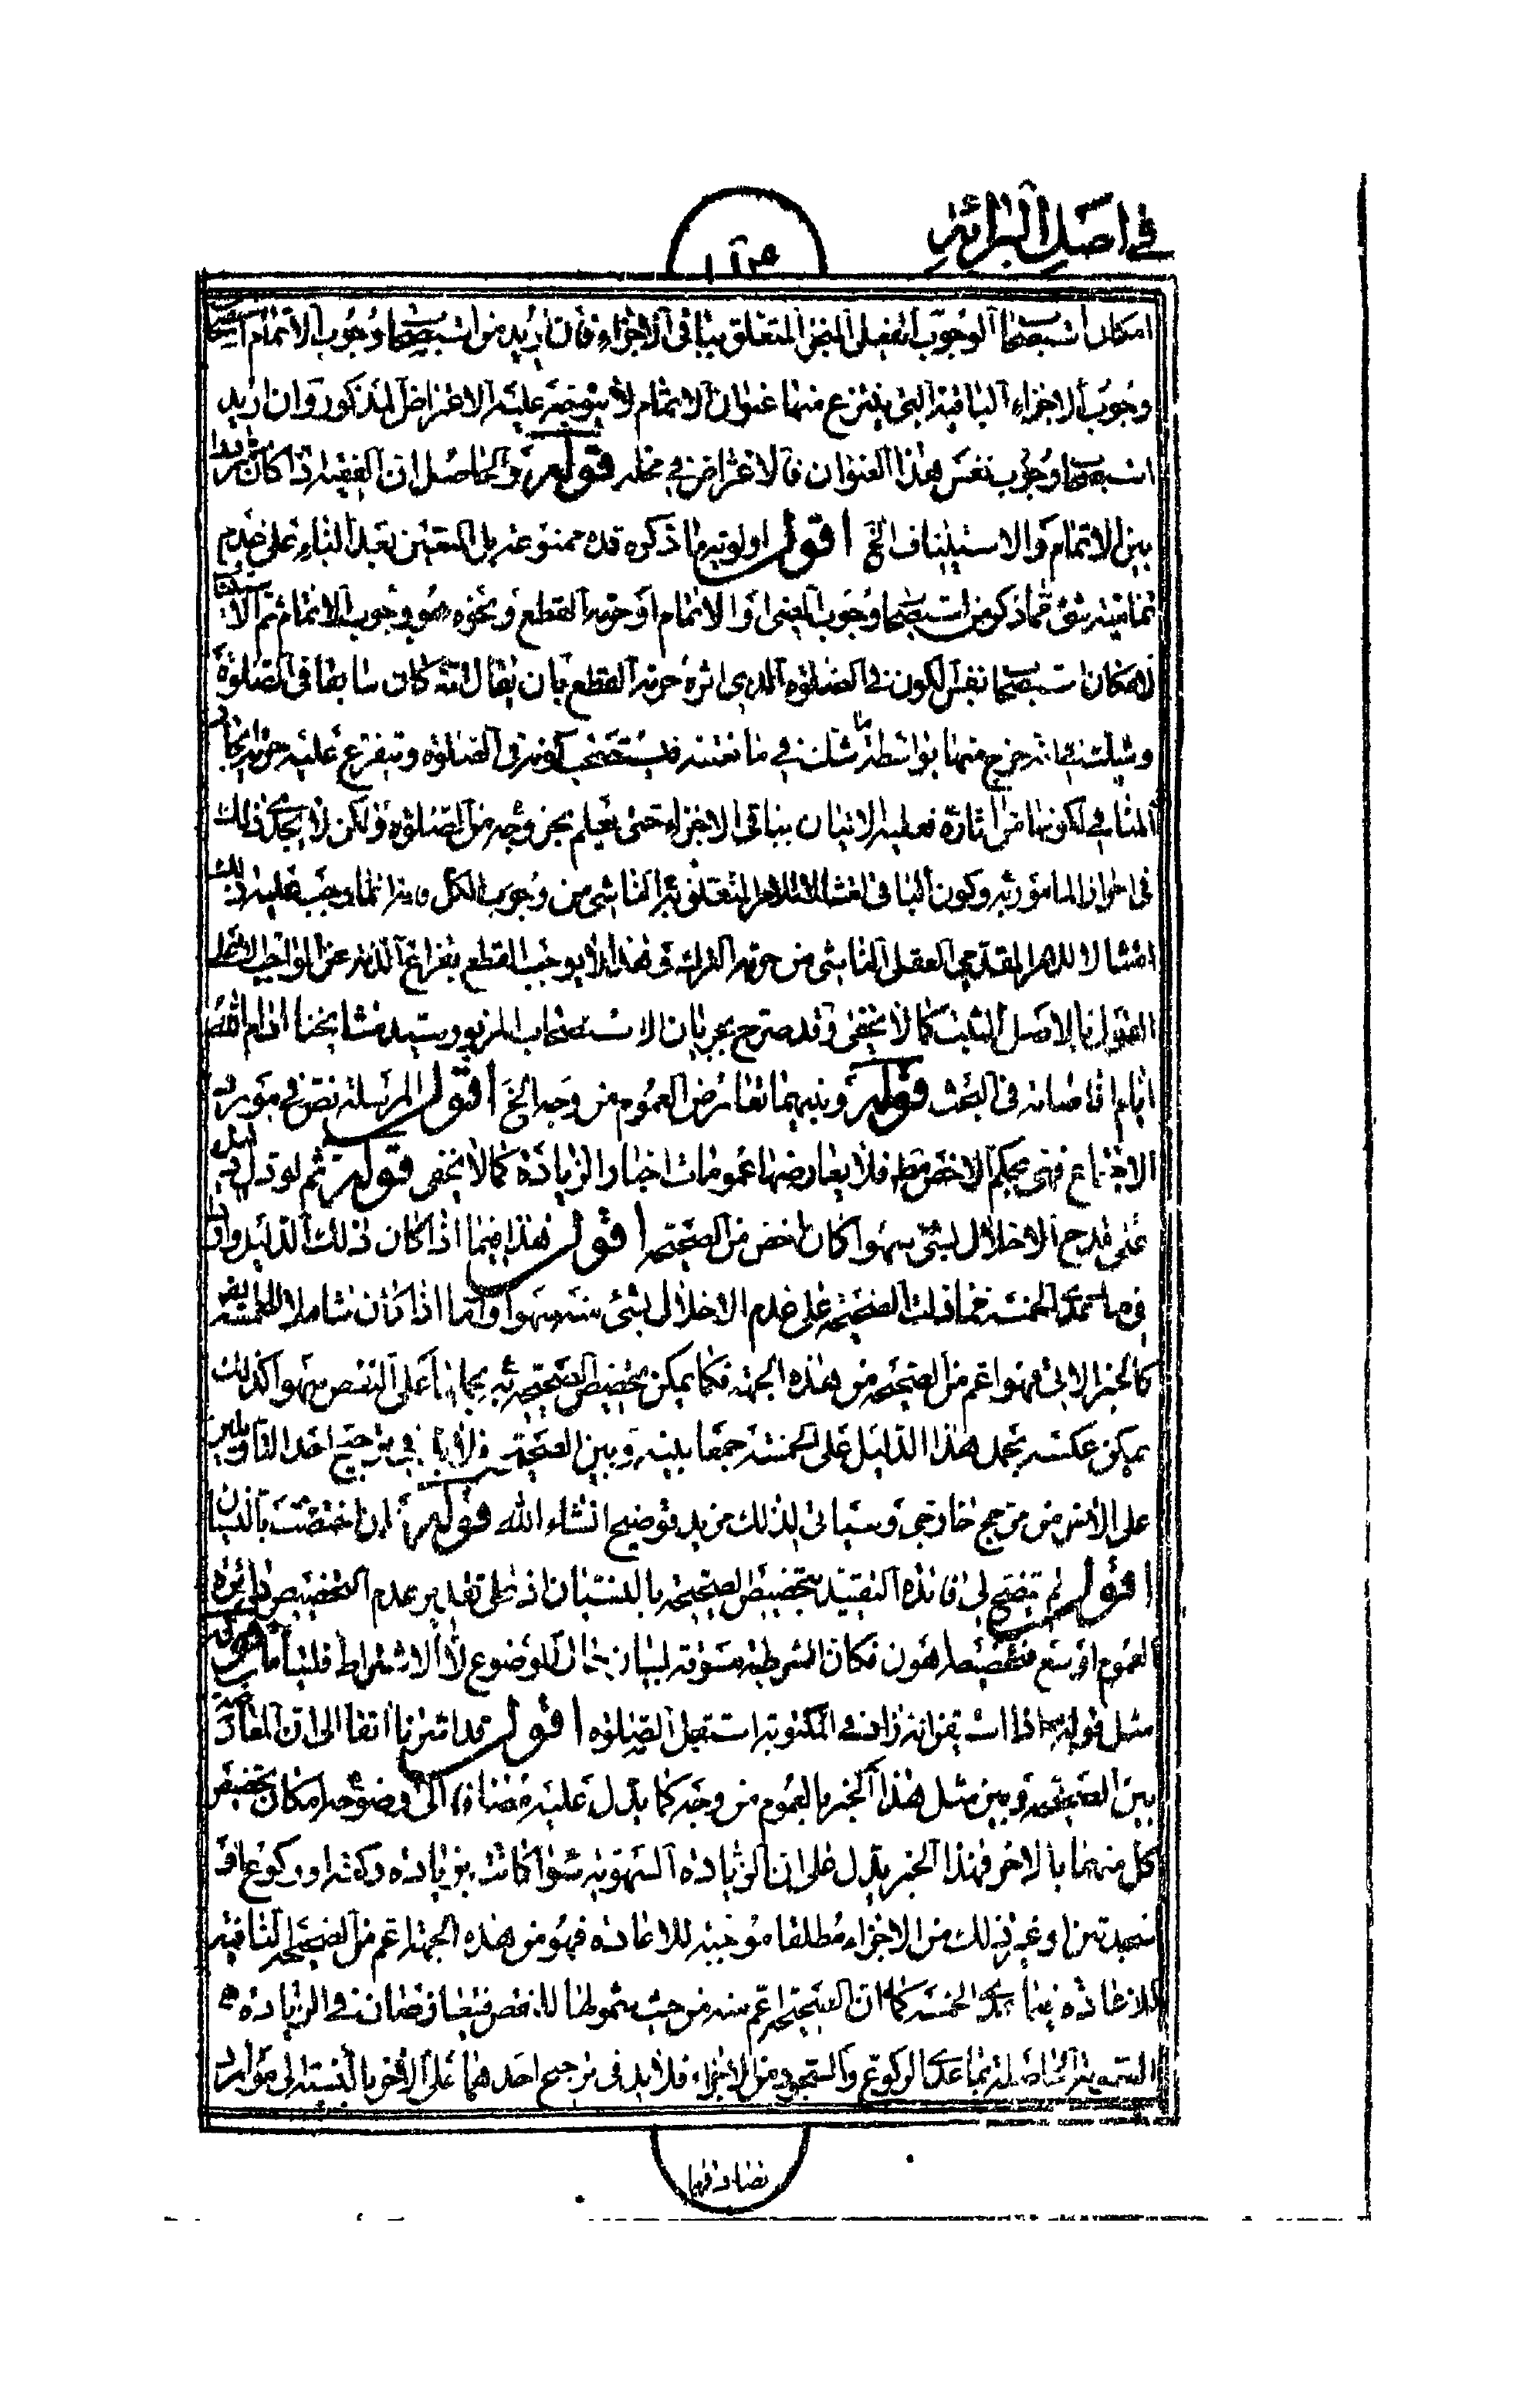 في اصل البرائة
امكان استصحاب الوجوب النفسي المتعلق بباقي الاجزاء فان اريد من استصحاب وجوب الاتمام استصحاب
وجوب الاجزاء الباقية التي ينتزع منها عنوان الاتمام لا يتوجه عليه الاعتراض المذكور وان اريد
استصحاب وجوب نفس هذا العنوان فالاعتراض في محله قوله والحاصل ان الفقيه اذا كان مترددا
بين الاتمام والاستيناف الخ اقول اولوية ما ذكره قده ممنوعة بل المتعين بعد البناء على عدم
تمامية شئ مما ذكر من استصحاب وجوب المضي او الاتمام او حرمة القطع ونحوه هو وجوب الاتمام ثم الاستيناف
لامكان استصحاب نفس الكون في الصلوة الذي اثره حرمة القطع بان يقال انه كان سابقا في الصلوة
وشك في انه خرج منها بواسطة ما شك في مانعيته فيستصحب كونه في الصلوة ويتفرع عليه حرمة ايجاد
المنافي لكونها من اثاره فعليه الاتيان بباقي الاجزاء حتى يعلم بخروجه من الصلوة ولكن لا يجدي ذلك
في احراز المامور به وكون الباقي امتثالا للامر المتعلق به الناشي من وجوب الكل وانما وجب عليه ذلك
امتثالا للامر المقدمي العقلي الناشي من حرمة القطع فهذا لا يوجب القطع بفراغ الذمة عن الواجب الا على
القول بالاصل المثبت كما لا يخفى وقد صرح بجريان الاستصحاب المزبور سيد مشايخنا ادام الله
ايام افاضاته في البحث قوله وبينهما تعارض العموم من وجه الخ اقول المرسلة نص في مورد
الاجتماع فهي بحكم الاخص مط فلا يعارضها عمومات اخبار الزيادة كما لا يخفى قوله ثم لو دل دليل
على قدح الاخلال بشئ سهوا كان اخص من الصحيحة اقول هذا فيما اذا كان ذلك الدليل واردا
في ما عدى الخمسة مما دلت الصحيحة على عدم الاخلال بشئ منه سهوا واما اذا كان شاملا للخمسة ايض
كالخبر الاتي فهو اعم من الصحيحة من هذه الجهة فكما يمكن تخصيص الصحيحة به بحملها على النقص سهوا كذلك
يمكن عكسه بحمل هذا الدليل على الخمسة جمعا بينه وبين الصحيحة فلا بد في ترجيح احد التاويلين
على الاخر من مرجح خارجي وسياتي لذلك مزيد توضيح انشاء الله قوله ان اختصت بالنسيان
اقول لم يتضح لي فائدة التقييد بتخصيص الصحيحة بالنسيان اذ على تقدير عدم التخصيص دائرة
العموم اوسع فتخصيصها اهون فكان الشرطية مسوقة لبيان حال الموضوع لا الاشتراط فليتامل قوله
مثل قوله اذا استيقن انه زاد في المكتوبة استقبل الصلوة اقول قد اشرنا انفا الى ان المعارضة
بين الصحيحة وبين مثل هذا الخبر بالعموم من وجه كما يدل عليه مضافا الى وضوحه امكان تخصيص
كل منهما بالاخر فهذا الخبر يدل على ان الزيادة السهوية سواء كانت بزيادة ركعة او ركوع او
سجدتين او غير ذلك من الاجزاء مطلقا موجبة للاعادة فهو من هذه الجهة اعم من الصحيحة النافية
للاعادة فيما عدى الخمسة كما ان الصحيحة اعم منه من حيث شمولها للنقص فيتعارضان في الزيادة
السهوية الحاصلة بما عدى الركوع والسجود من الاجزاء فلا بد في ترجيح احدهما على الاخر بالنسبة الى مورد
تصادقهما